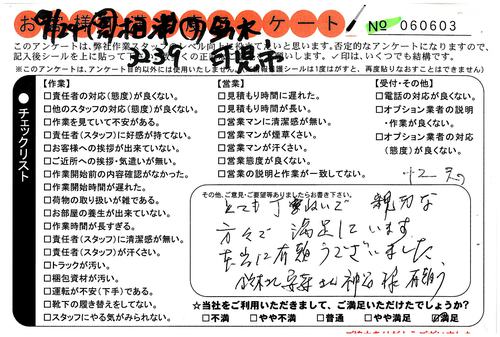 № 060603
このアンケートは、弊社作業スタッフのレベル向上に役立てたいと思います。否定的なアンケートになりますので、
記入後シールを上に
✓印は、いくつでも結構です。
※このアンケートは、アンケート目的以外には使用いたしません。
保護シールは1度はがすと、再度貼りなおすことはできません)
チェックリスト
【作業】
□責任者の対応(態度)が良くない。
□他のスタッフの対応(態度)が良くない。
□作業を見ていて不安がある。
□責任者(スタッフ)に好感が持てない。
□お客様への挨拶が出来ていない。
□ご近所への挨拶・気遣いが無い。
□作業開始前の内容確認がなかった。
□作業開始時間が遅れた。
□荷物の取り扱いが雑である。
□お部屋の養生が出来ていない。
□作業時間が長すぎる。
□責任者(スタッフ)に清潔感が無い。
□責任者(スタッフ)が汗くさい。
□トラックが汚い。
□梱包資材が汚い。
□運転が不安(下手)である。
□靴下の履き替えをしてない。
□スタッフにやる気がみられない。
【営業】
□見積もり時間に遅れた。
□見積もり時間が長い。
□営業マンに清潔感が無い。
□営業マンが煙草くさい。
□営業マンが汗くさい。
□営業態度が良くない。
□営業の説明と作業が一致してない。
【受付・その他】
□電話の対応が良くない。
□オプション業者の説明
・作業が良くない。
□オプション業者の対応
(態度)が良くない。
その他、ご意見・ご要望等ありましたらお書き下さい。
とても丁寧で 親切な
方々で 満足しています
本当に有難うございました
☆当社をご利用いただきまして、ご満足いただけたでしょうか?
□不満 □やや不満 □普通 □やや満足 ☑満足